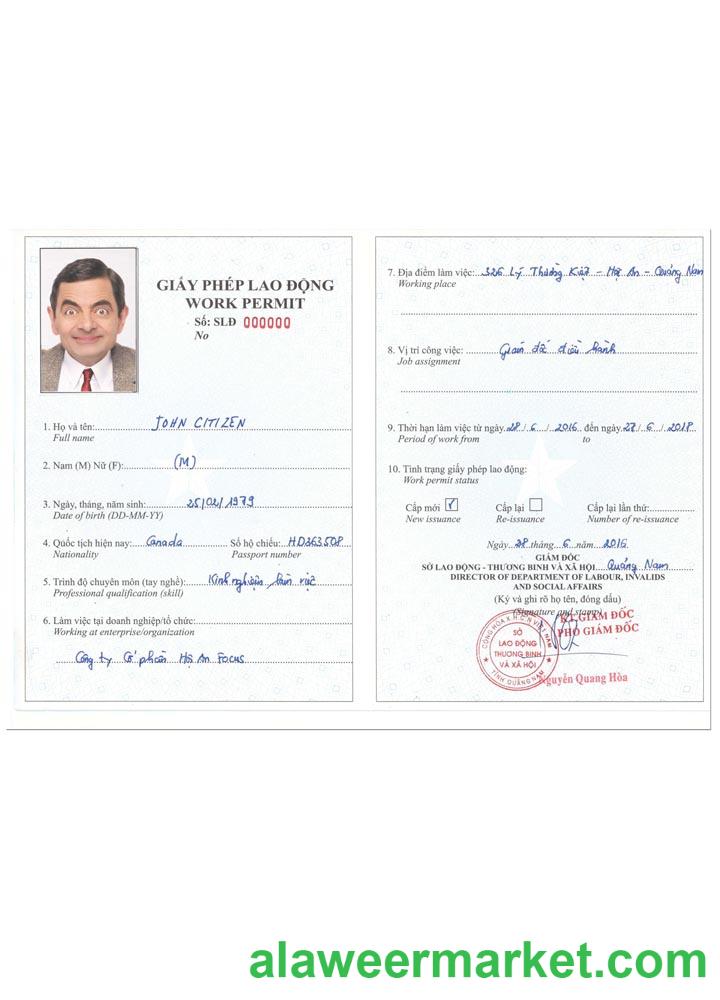 GIẤY PHÉP LAO ĐỘNG
WORK PERMIT
Số: SLĐ 000000
No
1. Họ và tên: JOHN CITIZEN
Full name
2. Nam (M) Nữ (F): (M)
3. Ngày, tháng, năm sinh: 25/02/1979
Date of birth (DD-MM-YY)
4. Quốc tịch hiện nay: Canada Số hộ chiếu: HD363508
Nationality Passport number
5. Trình độ chuyên môn (tay nghề): Kinh nghiệm làm việc
Professional qualification (skill)
6. Làm việc tại doanh nghiệp/tổ chức:
Working at enterprise/organization
Công ty Cổ phần Hội An Focus
7. Địa điểm làm việc: 326 Lý Thường Kiệt - Hội An - Quảng Nam
Working place
8. Vị trí công việc: Giám đốc điều hành
Job assignment
9. Thời hạn làm việc từ ngày 28/6/2016 đến ngày 27/6/2018
Period of work from to
10. Tình trạng giấy phép lao động:
Work permit status
Cấp mới ☑ Cấp lại ☐ Cấp lại lần thứ:
New issuance Re-issuance Number of re-issuance
Ngày 28 tháng 6 năm 2016
GIÁM ĐỐC
SỞ LAO ĐỘNG - THƯƠNG BINH VÀ XÃ HỘI Quảng Nam
DIRECTOR OF DEPARTMENT OF LABOUR, INVALIDS
AND SOCIAL AFFAIRS
(Ký và ghi rõ họ tên, đóng dấu)
(Signature and stamp)
KT.GIÁM ĐỐC
PHÓ GIÁM ĐỐC
CỘNG HÒA X.H.C.N VIỆT NAM
SỞ
LAO ĐỘNG
THƯƠNG BINH
VÀ XÃ HỘI
TỈNH QUẢNG NAM
Nguyễn Quang Hòa
alaweermarket.com